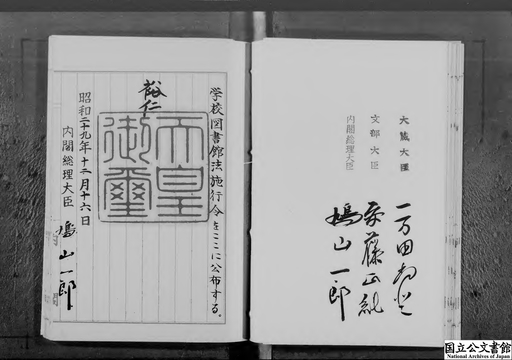 学校図書館法施行令をここに公布する。
裕仁
天皇
御璽
昭和二十九年十二月十六日
内閣総理大臣 鳩山一郎
大蔵大臣 一万田尚登
文部大臣 安藤正純
内閣総理大臣 鳩山一郎
国立公文書館
National Archives of Japan